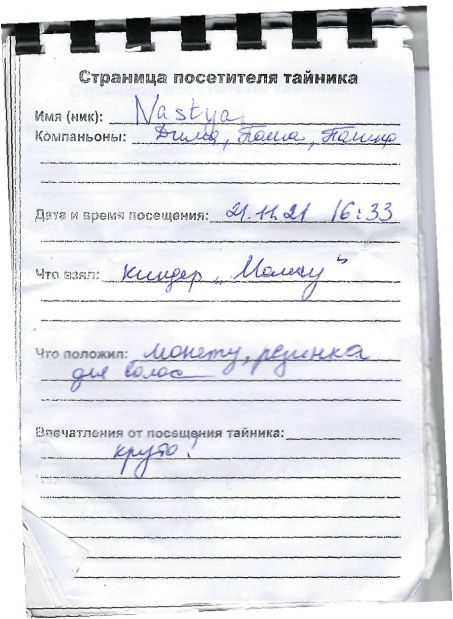 Страница посетителя тайника
Имя (ник): Nastya
Компаньоны: Дима, Паша,
Дата и время посещения: 21.11.21 16:33
Что взял: киндер „Молли"
Что положил: монету, резинка
для волос
Впечатления от посещения тайника:
круто!